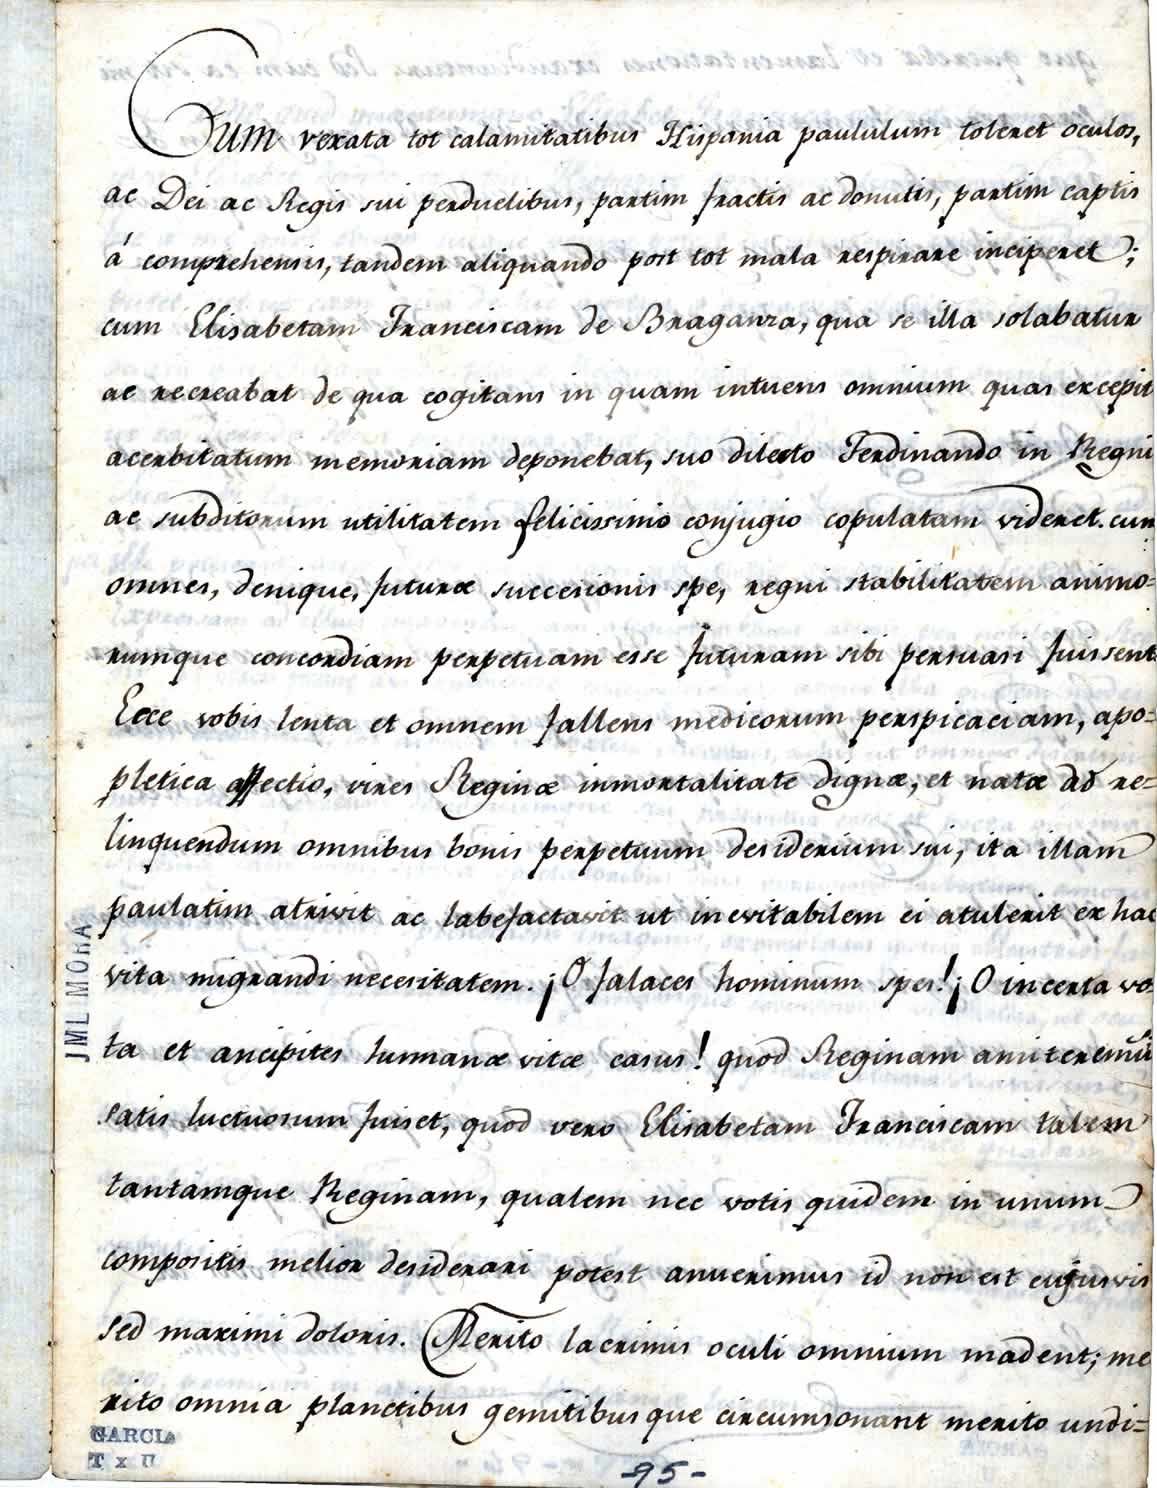 Cum vexata tot calamitatibus Hispania paululum toleret oculos,
ac Dei ac Regis sui perduelibus, partim fractis ac domitis, partim captis
á comprehensis, tandem aliquando post tot mala respirare inciperet;
cum Elisabetam Franciscam de Braganza, qua se illa solabatur
ac recreabat de qua cogitans in quam intuens omnium quas excepit
acerbitatum memoriam deponebat, suo dilecto Ferdinando in Regni
ac subditorum utilitatem felicissimo conjugio copulatam videret. cum
omnes, denique, futuræ succesionis spe, regni stabilitatem animo=
rumque concordiam perpetuam esse futuram sibi persuasi fuissent
Ecce vobis lenta et omnem fallens medicorum perspicaciam, apo=
pletica affectio, vires Reginæ inmortalitate dignæ, et natæ ad re=
linquendum omnibus bonis perpetuum desiderium sui, ita illam
paulatim atrivit ac labefactavit ut inevitabilem ei atulerit ex hac
vita migrandi necesitatem. ¡O falaces hominum spes! ¡O incerta vo=
ta et ancipites humanæ vitæ casus! quod Reginam amiteremus
satis luctuosum fuiset, quod vero Elisabetam Franciscam talem
tantamque Reginam, qualem nec votis quidem in unum
compositis melior desiderari potest amiserimus id non est cujusvis
sed maximi doloris. Merito lacrimis oculi omnium madent; me
rito omnia planctibus gemitibusque circumsonant merito undi=
JML MORA
GARCIA
T x U
-95-